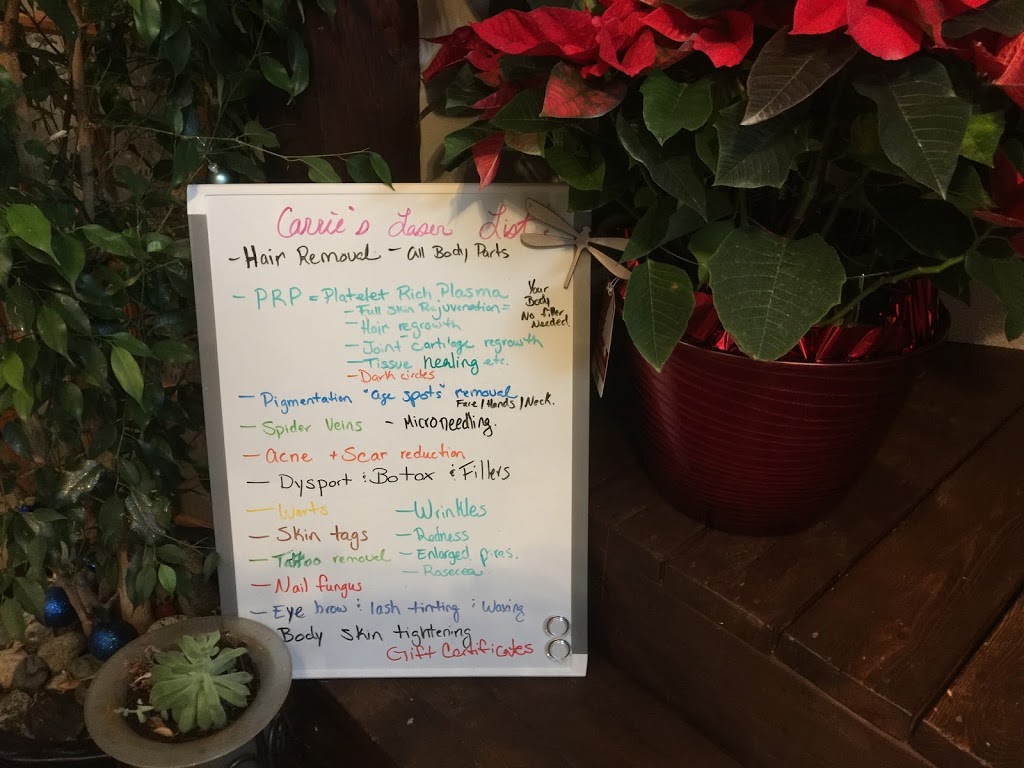 Carrie's Laser List
- Hair Removal - All Body Parts
- PRP = Platelet Rich Plasma
- Full Skin Rejuvenation =
- Hair regrowth
- Joint Cartilage regrowth
- Tissue healing etc.
- Dark circles
Your
Body
No filler
Needed
- Pigmentation "age spots" removal
Face/Hands/Neck.
- Spider Veins - Microneedling.
- Acne + Scar reduction
- Dysport & Botox & Fillers
- Warts - Wrinkles
- Skin tags - Redness
- Tattoo removal - Enlarged pores.
- Rosecea
- Nail fungus
- Eye brow & lash tinting & Waxing
Body skin tightening
Gift Certificates